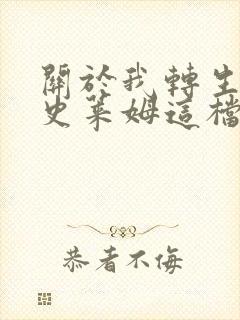 關於我轉生
史萊姆這檔
恭者不侮